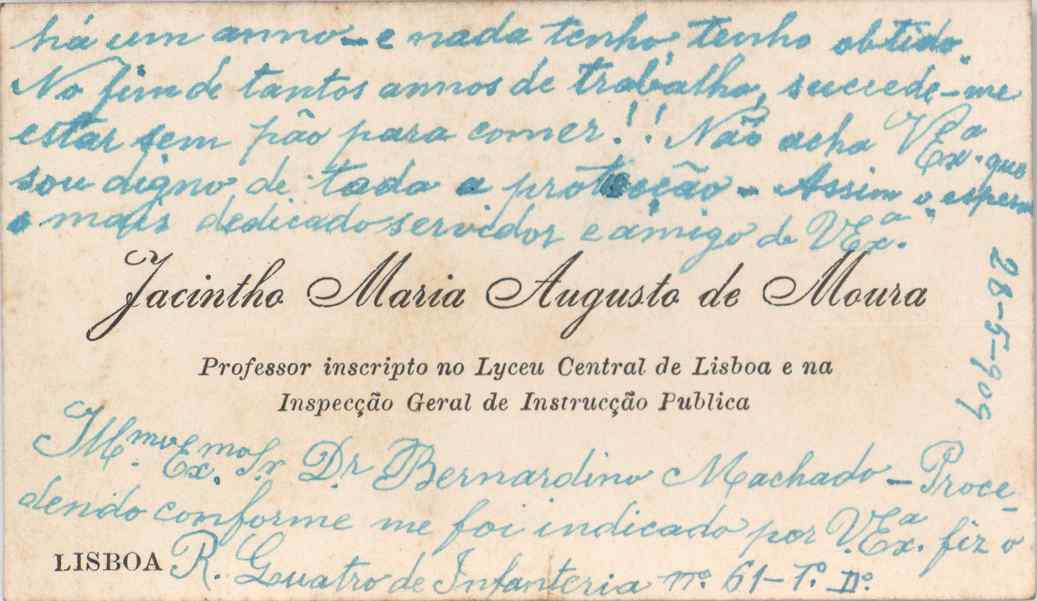 há um anno – e nada tenho, tenho obtido.
No fim de tantos annos de trabalho, succede-me
estar sem pão para comer!! Não acha V. Exª. que
sou digno de toda a protecção – Assim o espera
o mais dedicado servidor e amigo de V. Exª.
Jacintho Maria Augusto de Moura
28-5-909
Professor inscripto no Lyceu Central de Lisboa e na
Inspecção Geral de Instrucção Publica
Ill.mo Ex.mo Sr. Dr Bernardino Machado – Proce-
dendo conforme me foi indicado por V. Exª. fiz o
LISBOA R. Quatro de Infanteria nº. 61 – 1º. Dº.